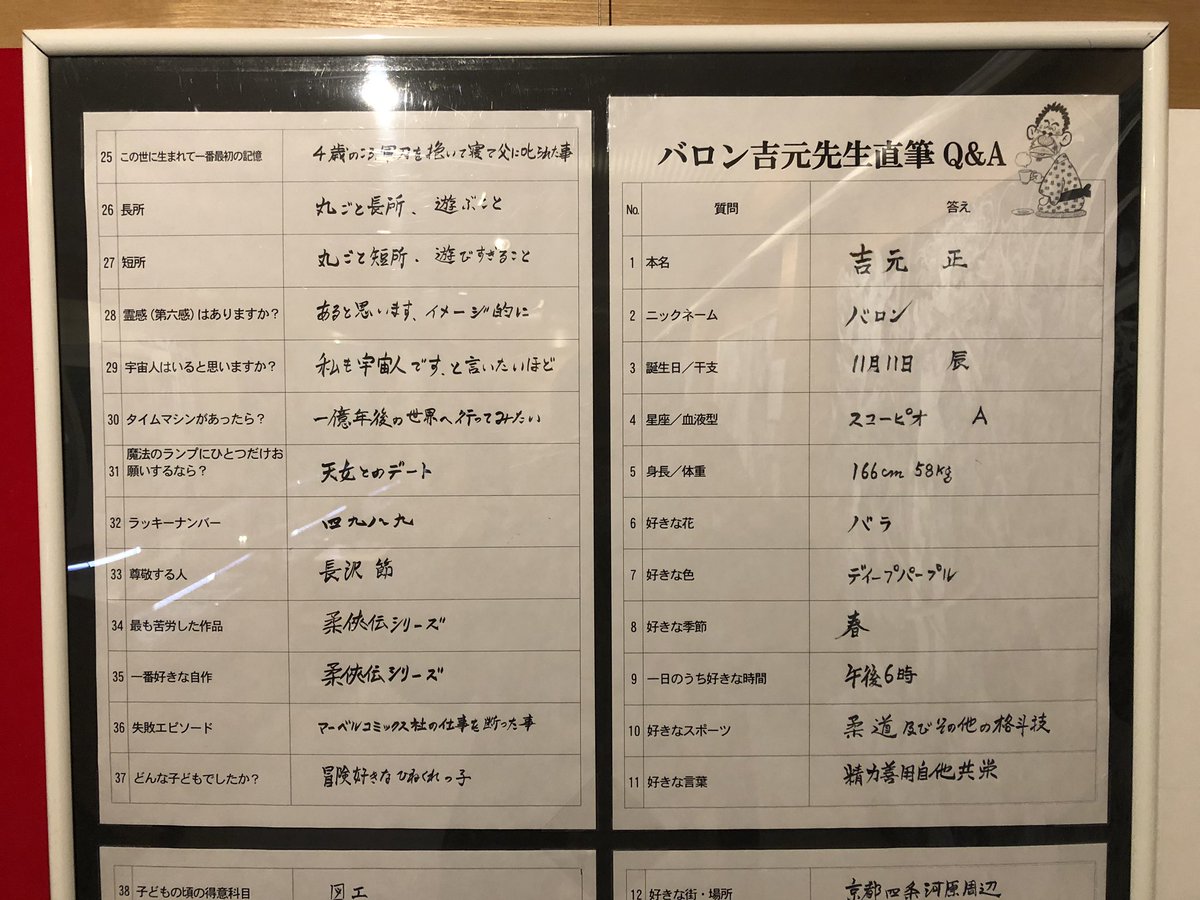 バロン吉元先生直筆 Q&A
No. 質問 答え
1 本名 吉元 正
2 ニックネーム バロン
3 誕生日／干支 11月11日 辰
4 星座／血液型 スコーピオ A
5 身長／体重 166cm 58kg
6 好きな花 バラ
7 好きな色 ディープパープル
8 好きな季節 春
9 一日のうち好きな時間 午後6時
10 好きなスポーツ 柔道及びその他の格斗技
11 好きな言葉 精力善用自他共栄
12 好きな街・場所 京都四条河原周辺
25 この世に生まれて一番最初の記憶 4歳のころ軍刀を抱いて寝て父に叱られた事
26 長所 丸ごと長所、遊ぶこと
27 短所 丸ごと短所、遊びすぎること
28 霊感（第六感）はありますか？ あると思います、イメージ的に
29 宇宙人はいると思いますか？ 私も宇宙人です、と言いたいほど
30 タイムマシンがあったら？ 一億年後の世界へ行ってみたい
31 魔法のランプにひとつだけお
願いするなら？ 天女とのデート
32 ラッキーナンバー 四九八九
33 尊敬する人 長沢 節
34 最も苦労した作品 柔侠伝シリーズ
35 一番好きな自作 柔侠伝シリーズ
36 失敗エピソード マーベルコミックス社の仕事を断った事
37 どんな子どもでしたか？ 冒険好きなひねくれっ子
38 子どもの頃の得意科目 図工